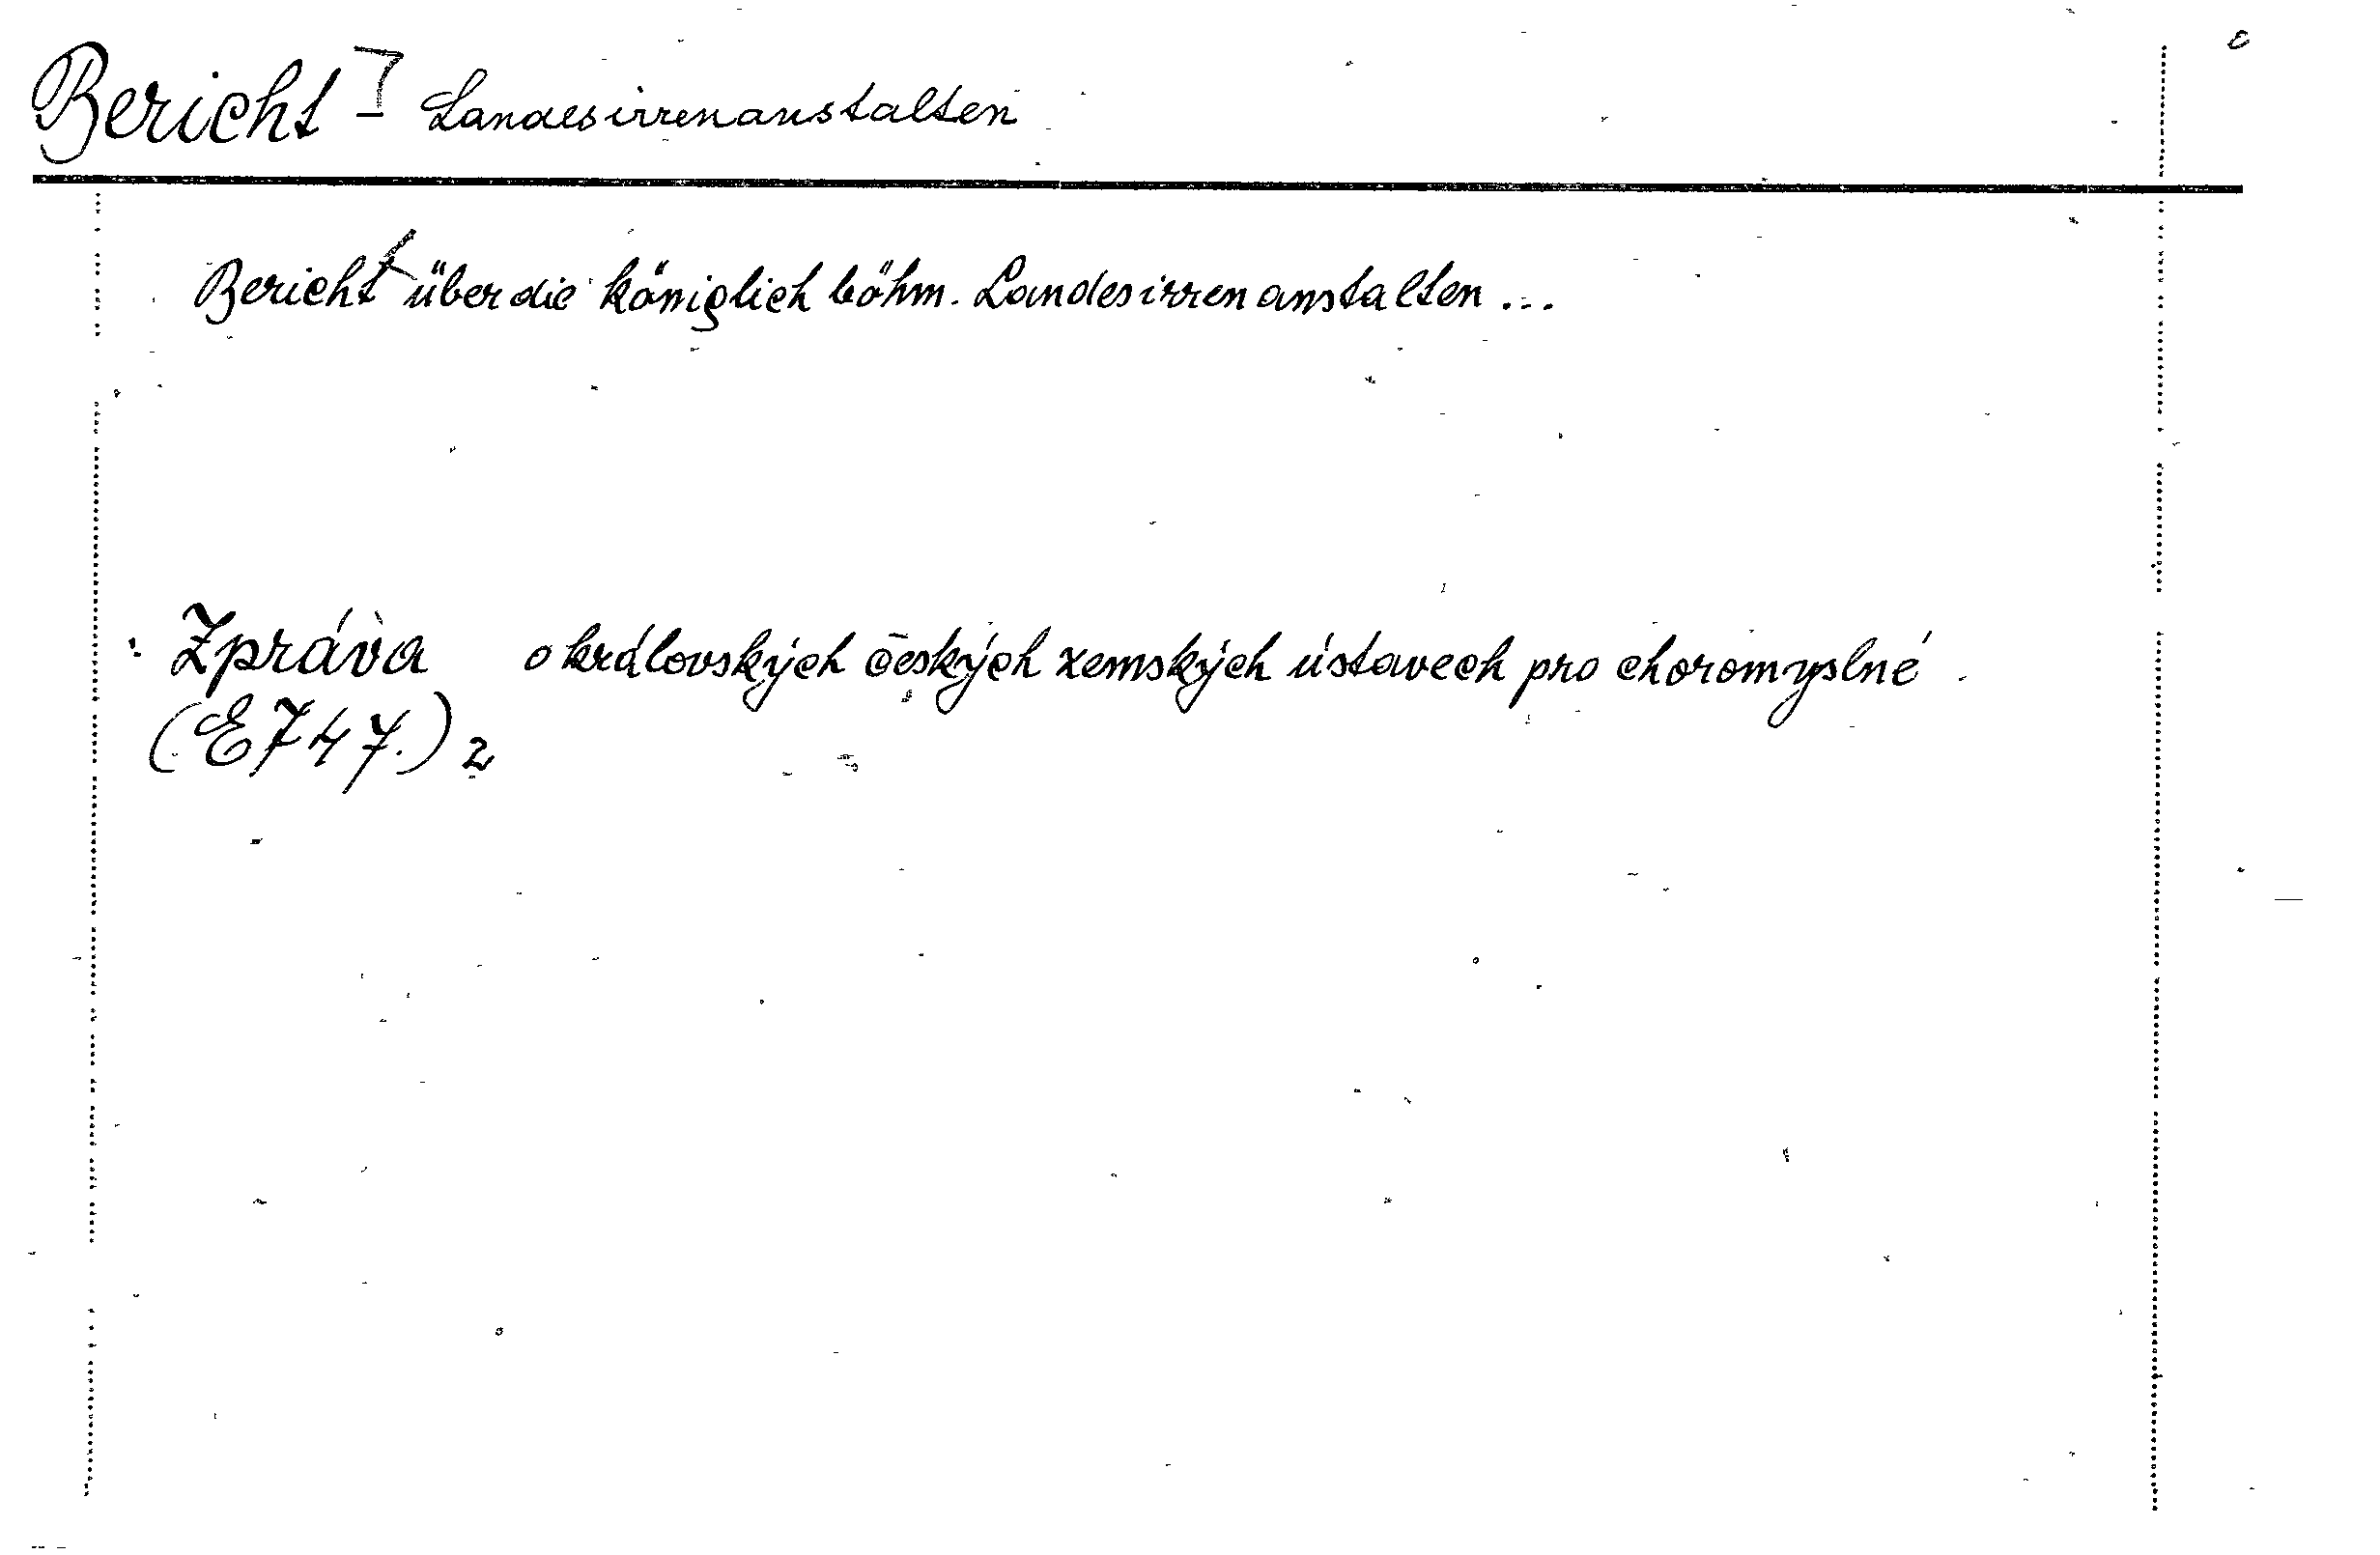 Bericht - Landesirrenanstalten
Bericht über die königlich böhm. Landesirrenanstalten ...
Zpráva o královských českých zemských ústavech pro choromyslné
(E747.) 2